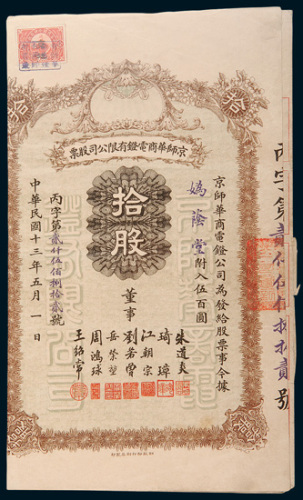 拾
拾
京師華商電燈有限公司股票
京師華商電燈公司為發給股票事今據
嫣蔭堂附入伍百圓
拾股
董事
朱道炎
琦璋
江朝宗
劉若曾
岳榮堃
周鴻球
王紹常
丙字第貳仟伍佰捌拾貳號
中華民國十三年五月一日
丙字第貳仟伍佰捌拾貳號